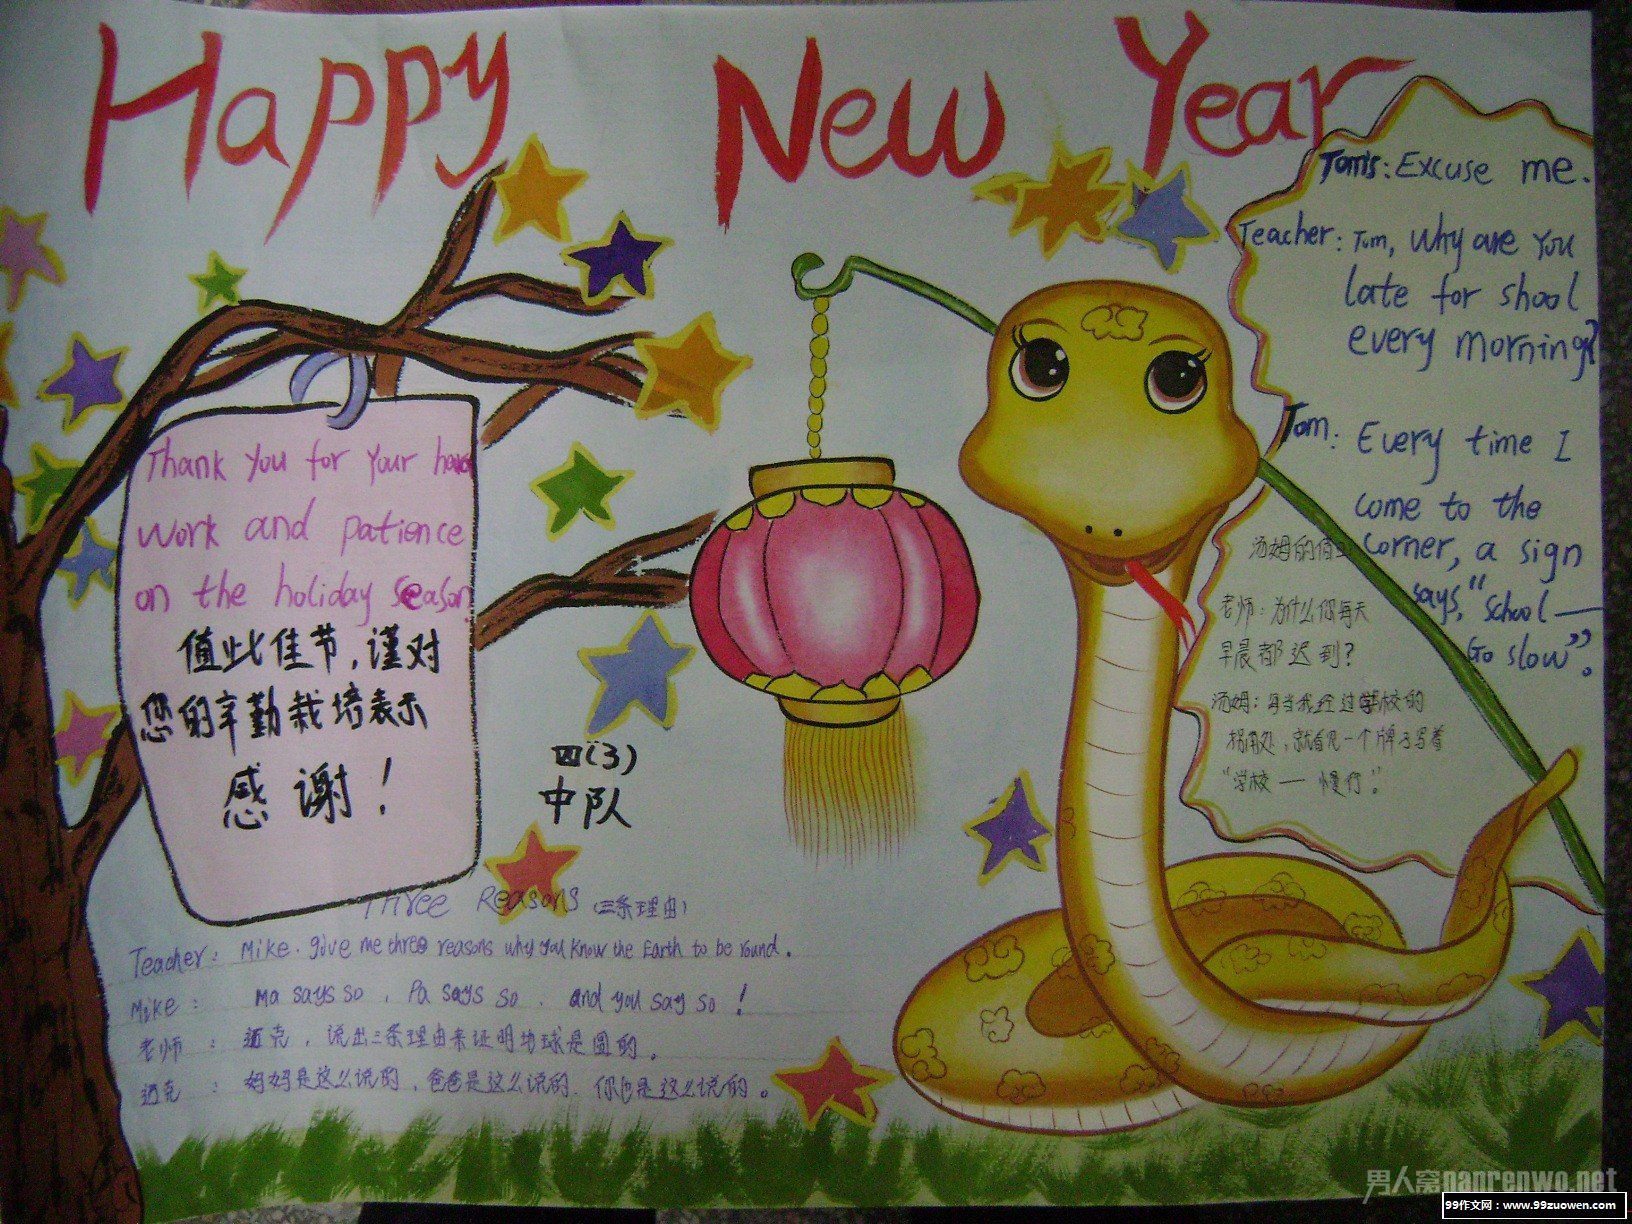 Happy New Year
Tom's: Excuse me.
Teacher: Tom, Why are You
late for shool
every morning?
Tom: Every time I
come to the
corner, a sign
says, "School—
Go slow".
老师：为什么你每天
早晨都迟到？
汤姆：每当我经过学校的
拐角处，就看见一个牌子写着
"学校—慢行"。
Thank You for Your
work and patience
on the holiday season
值此佳节，谨对
您的辛勤栽培表示
感谢！
四(3)
中队
Three Reasons (三条理由)
Teacher: Mike. give me three reasons why you know the Earth to be round.
Mike: Ma says so, Pa says so. and you say so!
老师：迈克，说出三条理由来证明地球是圆的。
迈克：妈妈是这么说的，爸爸是这么说的.你也是这么说的。
男人窝nanrenwo.net
99作文网：www.99zuowen.com